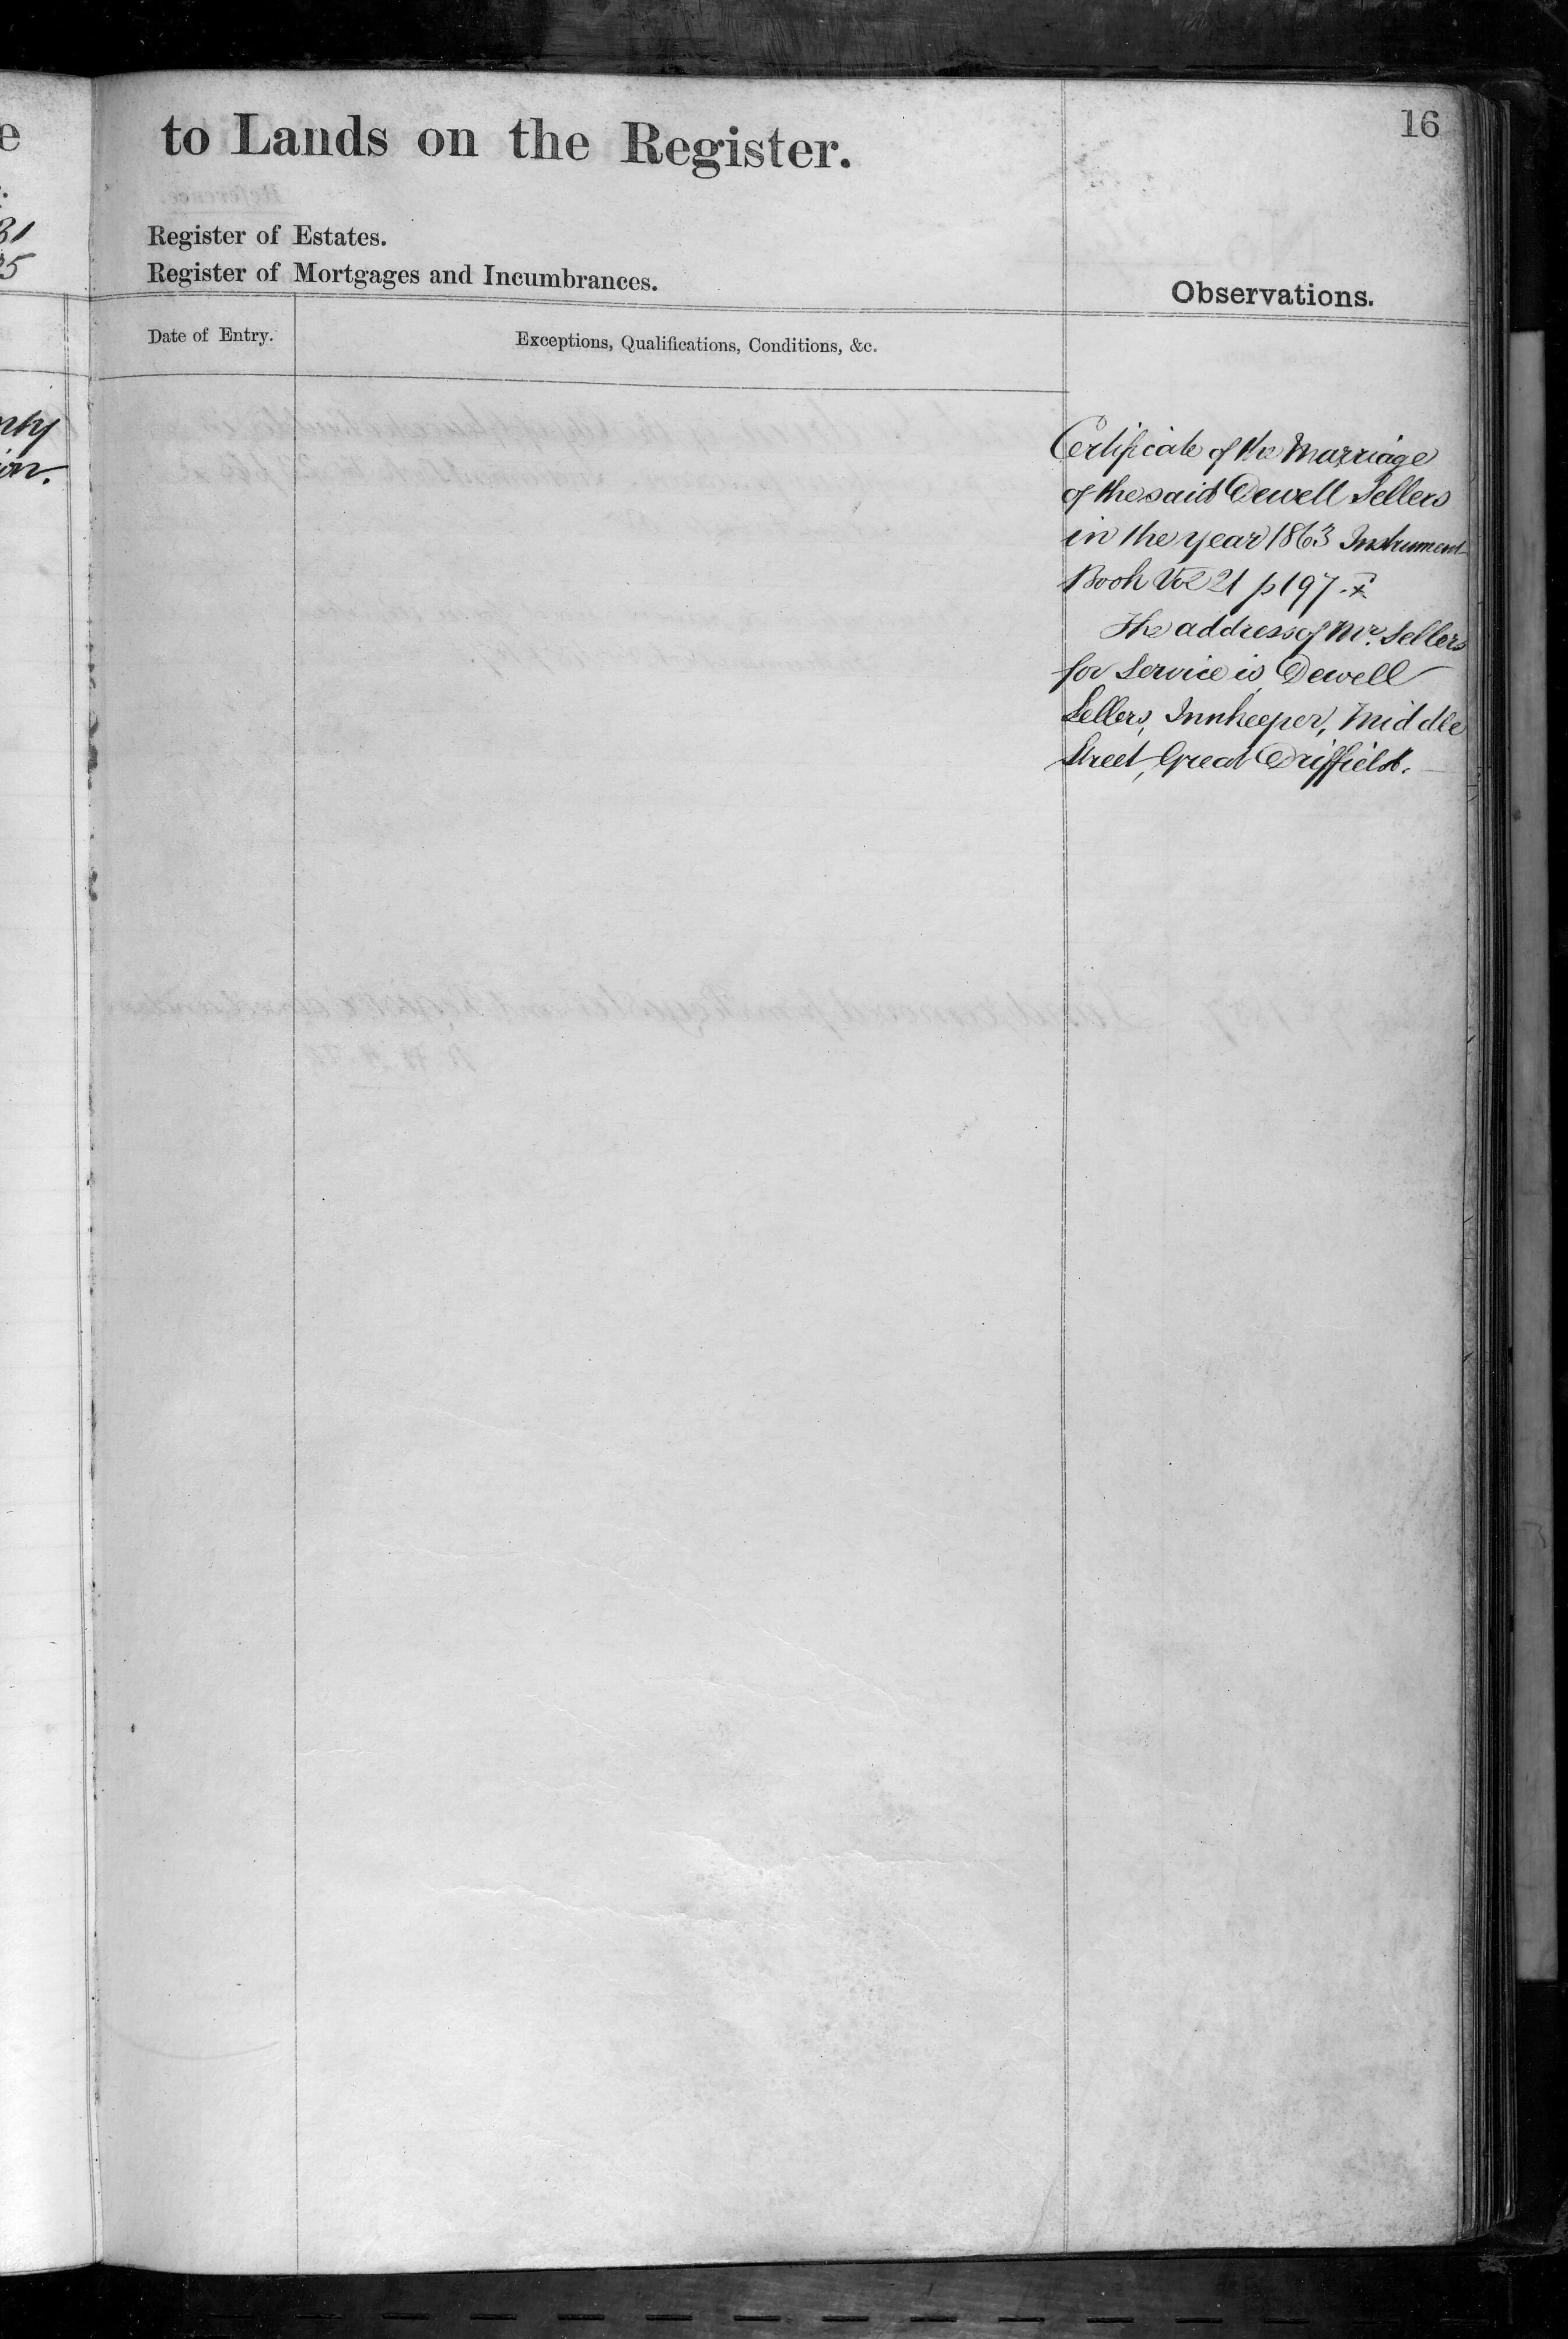 16
to Lands on the Register.
Register of Estates.
Register of Mortgages and Incumbrances.
Observations.
Date of Entry.
Exceptions, Qualifications, Conditions, &c.
Certificate of the Marriage
of the said Dewell Sellers
in the year 1863 Instrument
Book Vol 21 p 197.
The address of Mr. Sellers
for Service is Dewell
Sellers, Innkeeper, Middle
Street, Great Driffield.